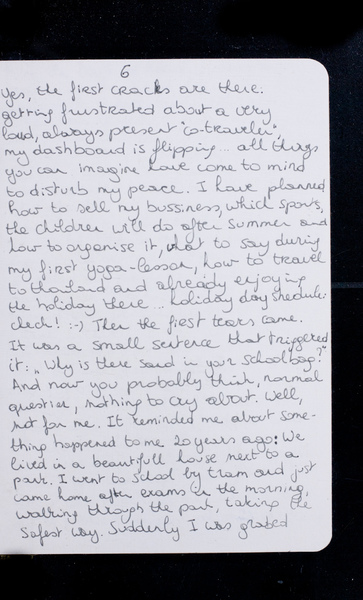 6
Yes, the first cracks are there.
getting frustrated about a very
loud, always present "co-traveler",
my dashboard is flipping... all things
you can imagine have come to mind
to disturb my peace. I have planned
how to sell my bussiness, which sports,
the children will do after Summer and
how to organise it, what to say during
my first yoga-lesson, how to travel
to thailand and already enjoying
the holiday there... holiday day shedule:
check! :-) Then the first tears came.
It was a small sentence that triggered
it: "Why is there sand in your schoolbag?"
And now you probably think, normal
question, nothing to cry about. Well,
not for me. It reminded me about some-
thing happened to me 20 years ago: We
lived in a beautifull house next to a
park. I went to school by tram and just
came home after exams in the morning,
walking through the park, taking the
safest way. Suddenly I was grabed